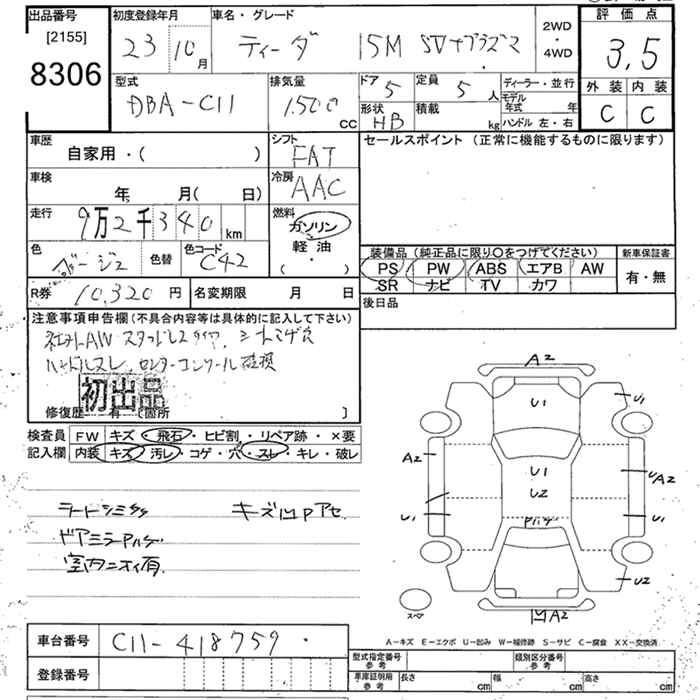 出品番号 初度登録年月 車名・グレード 2WD ・ 4WD 評価点
[2155] 23 10月 ティーダ 15M SVナプラズマ 3,5
8306
型式 排気量 ドア 5 定員 5 人 ディーラー・並行 外装 内装
DBA-C11 1,500 CC 形状 HB 積載 kg モデル年式 年 ハンドル 左・右 C C
車歴 シフト セールスポイント (正常に機能するものに限ります)
自家用・( ) FAT
車検 冷房
年 月( 日) AAC
走行 9万2千340km 燃料
ガソリン
軽油
( ・ )
色 ベージュ 色替 色コード C42 装備品 (純正品に限り○をつけてください) 新車保証書
PS PW ABS エアB AW 有・無
SR ナビ TV カワ
R券 10,320 円 名変期限 月 日 後日品
注意事項申告欄 (不具合内容等は具体的に記入して下さい)
社外AW スタッドレスタイヤ、シート
ハンドルスレ センターコンソール
初出品
修復歴 有 [箇所 ]
検査員 FW キズ・飛石・ヒビ割・リペア跡・×要
記入欄 内装 キズ・汚レ・コゲ・穴・スレ・キレ・破レ
シートシミ キズ凹Pアセ
ドアミラーPハゲ
室内ニオイ有
A2
U1 U1
A2 U1 UA2
U2
U1 Pハゲ U1
U2
スペア 凹A2
A-キズ E-エクボ U-凹み W-補修跡 S-サビ C-腐食 XX-交換済
車台番号 C11-418759
型式指定番号 参考 類別区分番号 参考
登録番号 車庫証明用 参考 長さ cm 幅 cm 高さ cm